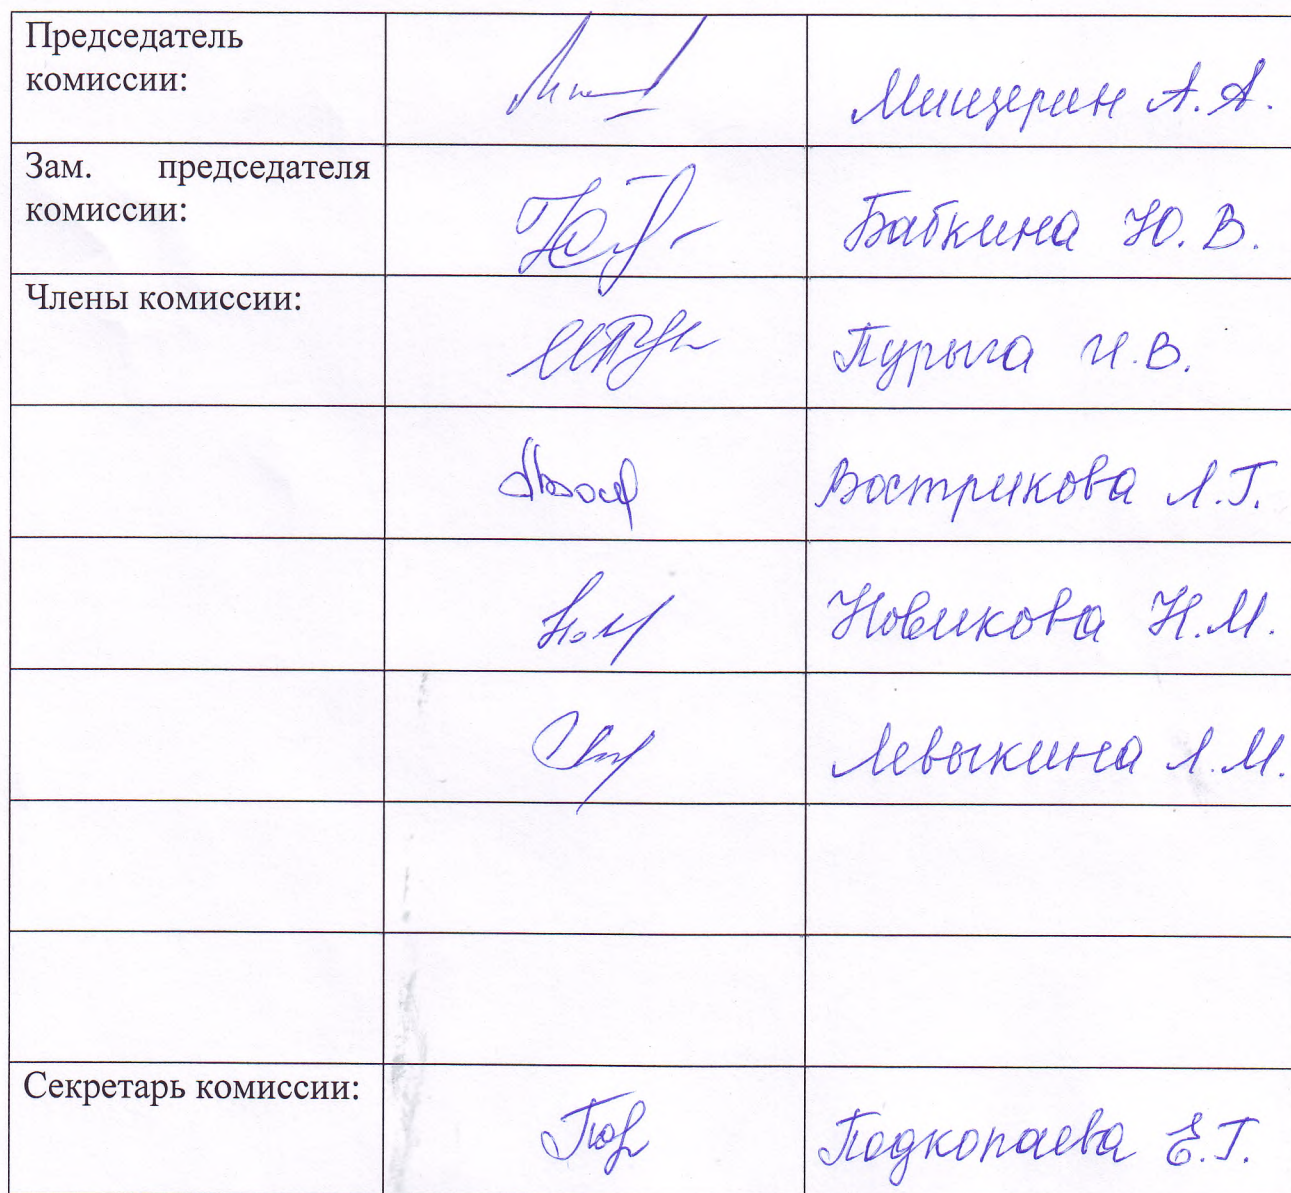 Председатель
комиссии:
Мищерин А. А.
Зам. председателя
комиссии:
Бабкина Ю. В.
Члены комиссии:
Пурыга И.В.
Вострикова Л.Г.
Новикова Н.М.
Левыкина Л.М.
Секретарь комиссии:
Подкопаева Е.Г.